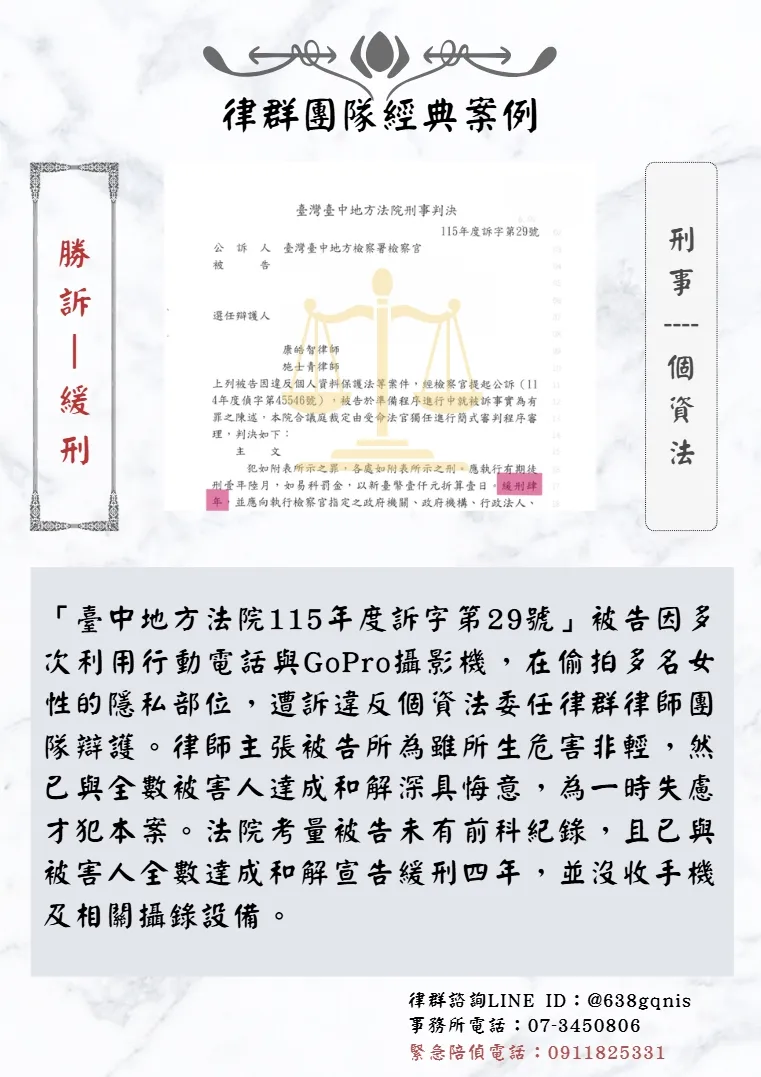 律群團隊經典案例
勝訴—緩刑
臺灣臺中地方法院刑事判決
115年度訴字第29號
公訴人 臺灣臺中地方檢察署檢察官
被告
選任辯護人
康皓智律師
施士青律師
上列被告因違反個人資料保護法等案件,經檢察官提起公訴(11
4年度偵字第45546號),被告於準備程序進行中就被訴事實為有
罪之陳述,本院合議庭裁定由受命法官獨任進行簡式審判程序審
理,判決如下:
主文
犯如附表所示之罪,各處如附表所示之刑。應執行有期徒
刑壹年陸月,如易科罰金,以新臺幣壹仟元折算壹日。緩刑肆
年,並應向執行檢察官指定之政府機關、政府機構、行政法人、
刑事----個資法
「臺中地方法院115年度訴字第29號」被告因多
次利用行動電話與GoPro攝影機,在偷拍多名女
性的隱私部位,遭訴違反個資法委任律群律師團
隊辯護。律師主張被告所為雖所生危害非輕,然
已與全數被害人達成和解深具悔意,為一時失慮
才犯本案。法院考量被告未有前科紀錄,且已與
被害人全數達成和解宣告緩刑四年,並沒收手機
及相關攝錄設備。
律群諮詢LINE ID:@638gqnis
事務所電話:07-3450806
緊急陪偵電話:0911825331